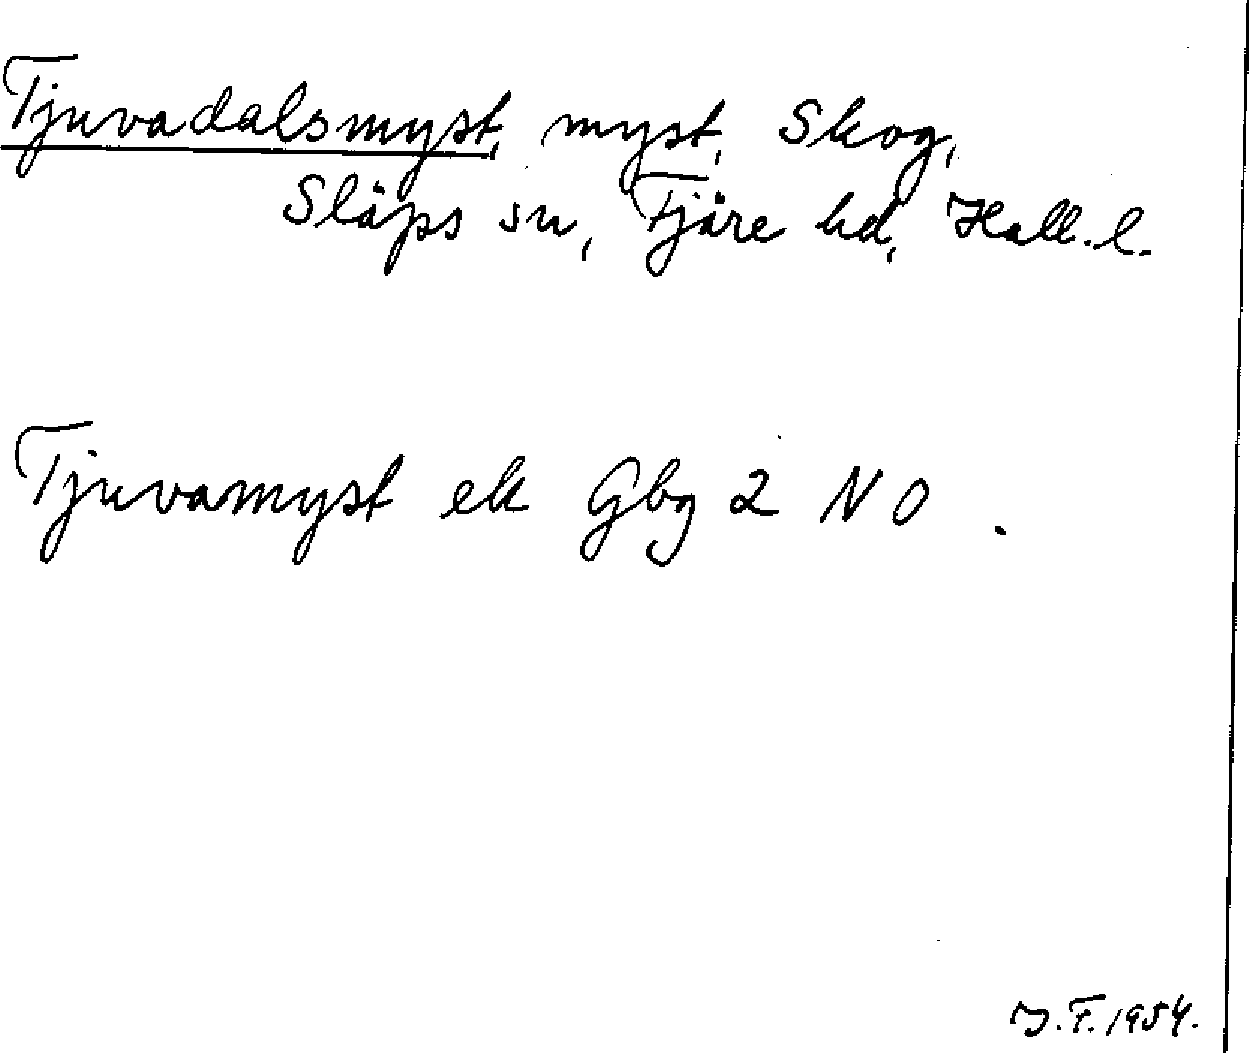 Tjuvadalsmyst, myst, Skog,
Släps sn, Fjäre hd, Hall. l.
Tjuvamyst ek Gbg 2 NO.
J.F. 1954.